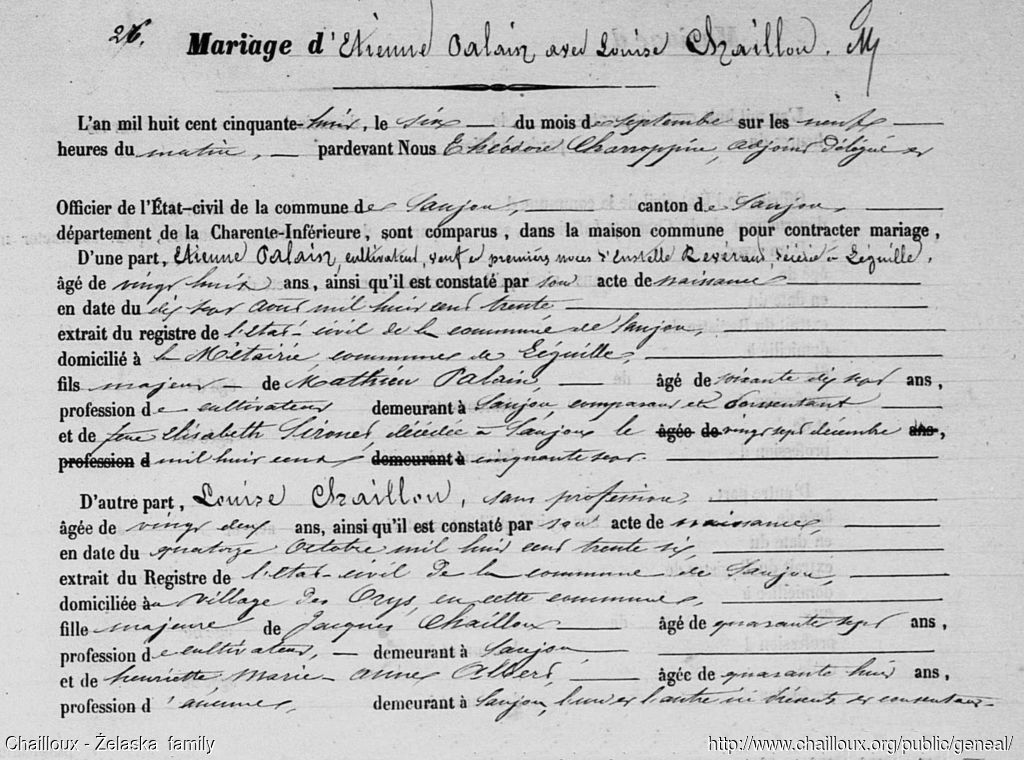 26. Mariage d'Etienne Palain avec Louise Chaillou.
L'an mil huit cent cinquante-huit, le six du mois de septembre sur les neuf
heures du matin, pardevant Nous Théodore Charroppin, adjoint délégué et
Officier de l'État-civil de la commune de Saujon, canton de Saujon,
département de la Charente-Inférieure, sont comparus, dans la maison commune pour contracter mariage,
D'une part, Etienne Palain, cultivateur, veuf de premières noces d' décédée à Léguille,
âgé de vingt huit ans, ainsi qu'il est constaté par son acte de naissance
en date du dix sept aout mil huit cent trente
extrait du registre de l'état-civil de la commune de Saujon,
domicilié à la Métairie commune de Léguille,
fils majeur de Mathieu Palain, âgé de soixante dix sept ans,
profession de cultivateur demeurant à Saujon, comparant et consentant
et de feue Elisabeth décédée à Saujon le âgée de vingt sept décembre ans,
profession d mil huit cent demeurant à cinquante sept.
D'autre part, Louise Chaillou, sans profession,
âgée de vingt deux ans, ainsi qu'il est constaté par son acte de naissance
en date du quatorze octobre mil huit cent trente six,
extrait du Registre de l'état-civil de la commune de Saujon,
domiciliée au village des Orys, en cette commune,
fille majeure de Jacques Chailloux âgé de quarante sept ans,
profession de cultivateur, demeurant à Saujon
et de henriette Marie-anne Albert, âgée de quarante huit ans,
profession d'aucune, demeurant à Saujon, l'un et l'autre ici présents et consentants
Chailloux - Želaska family
http://www.chailloux.org/public/geneal/